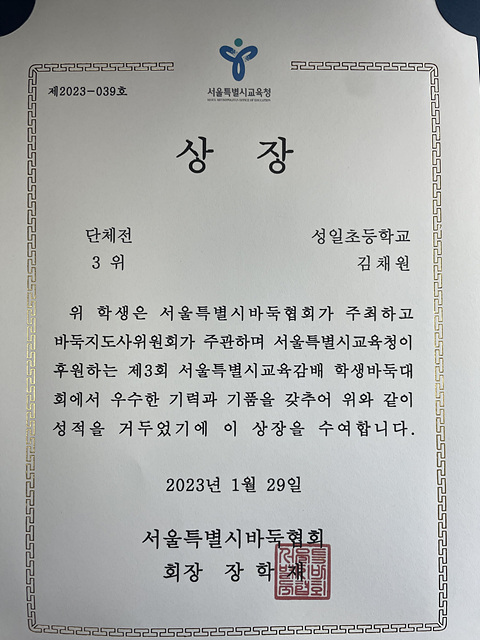 서울특별시교육청
SEOUL METROPOLITAN OFFICE OF EDUCATION
제2023-039호
상 장
단체전 성일초등학교
3 위 김채원
위 학생은 서울특별시바둑협회가 주최하고
바둑지도사위원회가 주관하며 서울특별시교육청이
후원하는 제3회 서울특별시교육감배 학생바둑대
회에서 우수한 기력과 기품을 갖추어 위와 같이
성적을 거두었기에 이 상장을 수여합니다.
2023년 1월 29일
서울특별시바둑협회
회장 장학재